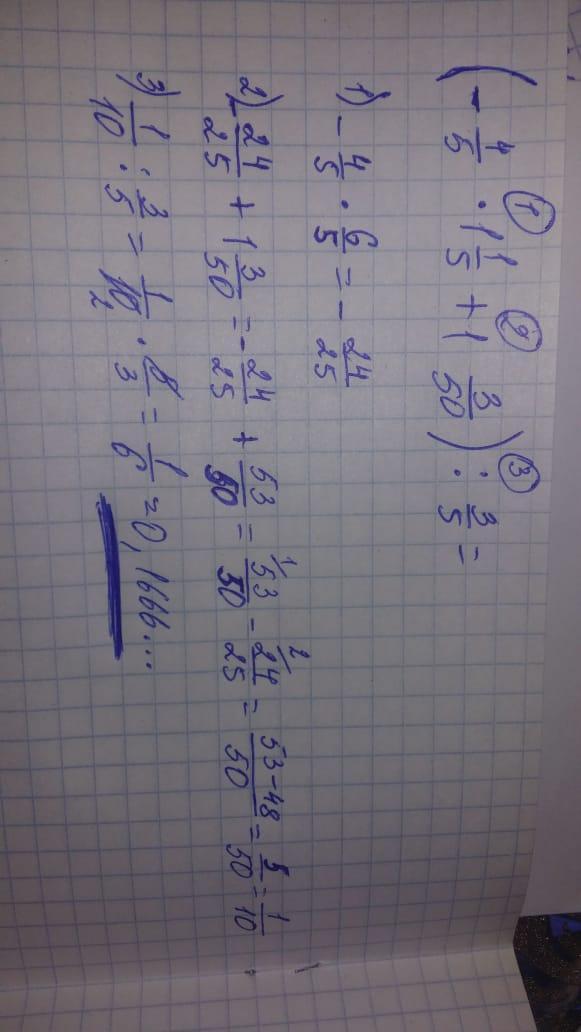 ① ② ③
(-4/5 · 1 1/5 + 1 3/50) : 3/5 =
1) -4/5 · 6/5 = -24/25
2) -24/25 + 1 3/50 = -24/25 + 53/50 = 53/50 - 24/25 = 53-48/50 = 5/50 = 1/10
3) 1/10 : 3/5 = 1/10 · 5/3 = 1/6 = 0,1666...